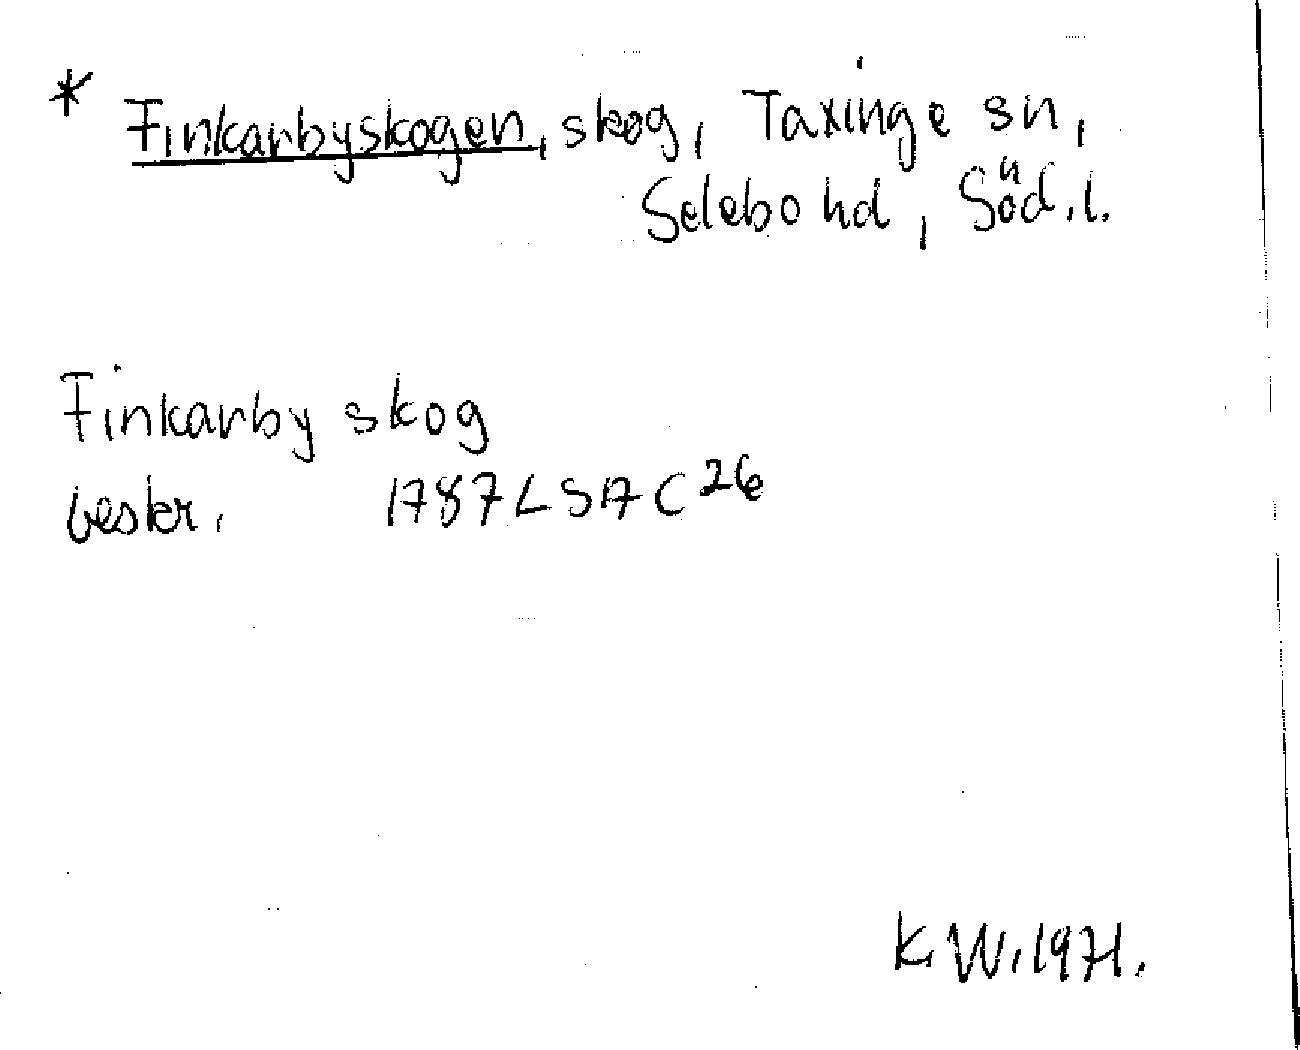 * Finkarbyskogen, skog, Taxinge sn,
Selebo hd, Söd. l.
Finkarby skog
beskr. 1787 LSA C 26
K. W. 1971.